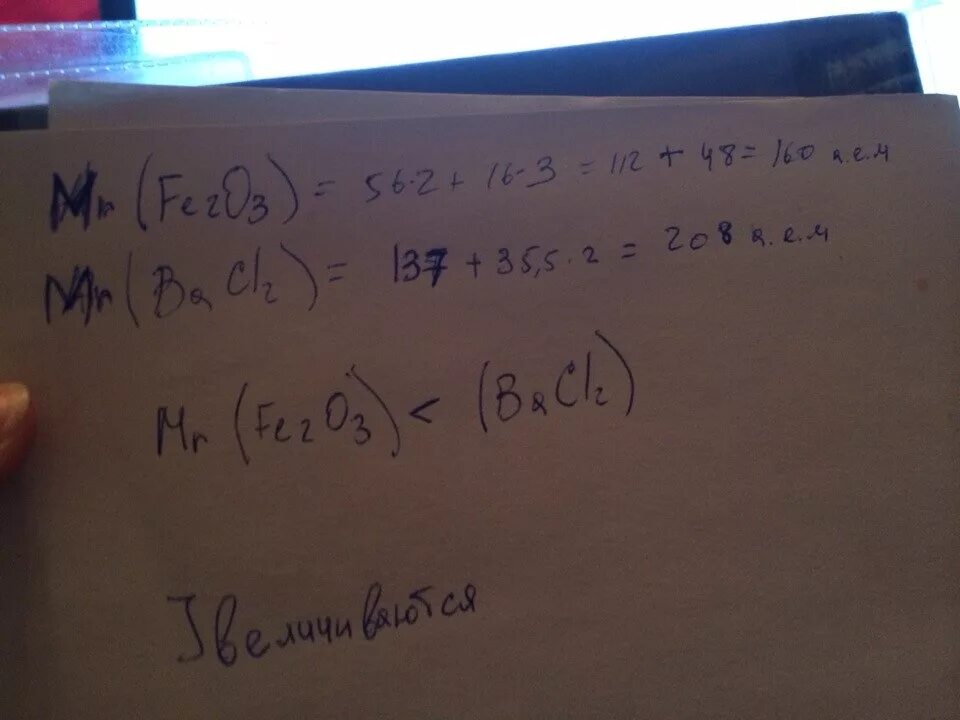 Mr (Fe2O3) = 56·2 + 16·3 = 112 + 48 = 160 а.е.м
Mr (BaCl2) = 137 + 35,5·2 = 208 а.е.м
Mr (Fe2O3) < (BaCl2)
Увеличиваются